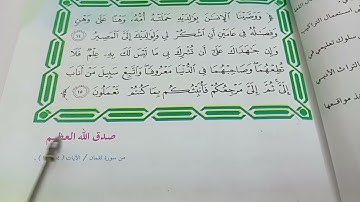 ﴿ وَوَصَّيْنَا ٱلْإِنسَٰنَ بِوَٰلِدَيْهِ حَمَلَتْهُ أُمُّهُۥ وَهْنًا عَلَىٰ وَهْنٍ
وَفِصَٰلُهُۥ فِى عَامَيْنِ أَنِ ٱشْكُرْ لِى وَلِوَٰلِدَيْكَ إِلَىَّ ٱلْمَصِيرُ ١٤
وَإِن جَٰهَدَاكَ عَلَىٰٓ أَن تُشْرِكَ بِى مَا لَيْسَ لَكَ بِهِۦ عِلْمٌ فَلَا
تُطِعْهُمَا وَصَاحِبْهُمَا فِى ٱلدُّنْيَا مَعْرُوفًا وَٱتَّبِعْ سَبِيلَ مَنْ أَنَابَ
إِلَىَّ ثُمَّ إِلَىَّ مَرْجِعُكُمْ فَأُنَبِّئُكُم بِمَا كُنتُمْ تَعْمَلُونَ ١٥ ﴾
صدق الله العظيم
من سورة لقمان / الآيات
استعمال التراكيب
سلوك تعليمي في
التراث الأدبي
مواقعها